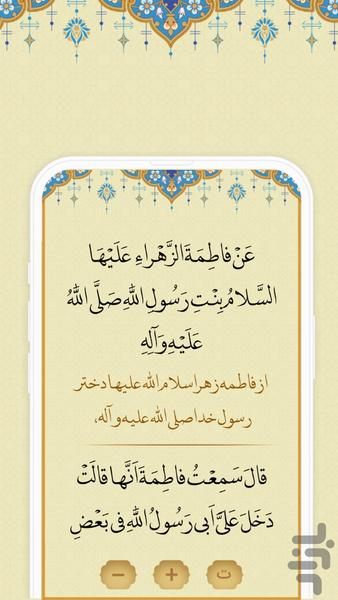 عَنْ فاطِمَةَ الزَّهْراءِ عَلَيْهَا
السَّلامُ بِنْتِ رَسُولِ اللهِ صَلَّى اللهُ
عَلَيْهِ وَآلِهِ
از فاطمه زهرا سلام الله علیها دختر
رسول خدا صلی الله علیه و آله،
قالَ سَمِعْتُ فاطِمَةَ أَنَّها قالَتْ
دَخَلَ عَلَىَّ أَبى رَسُولُ اللهِ فى بَعْضِ
− + ت
بازار